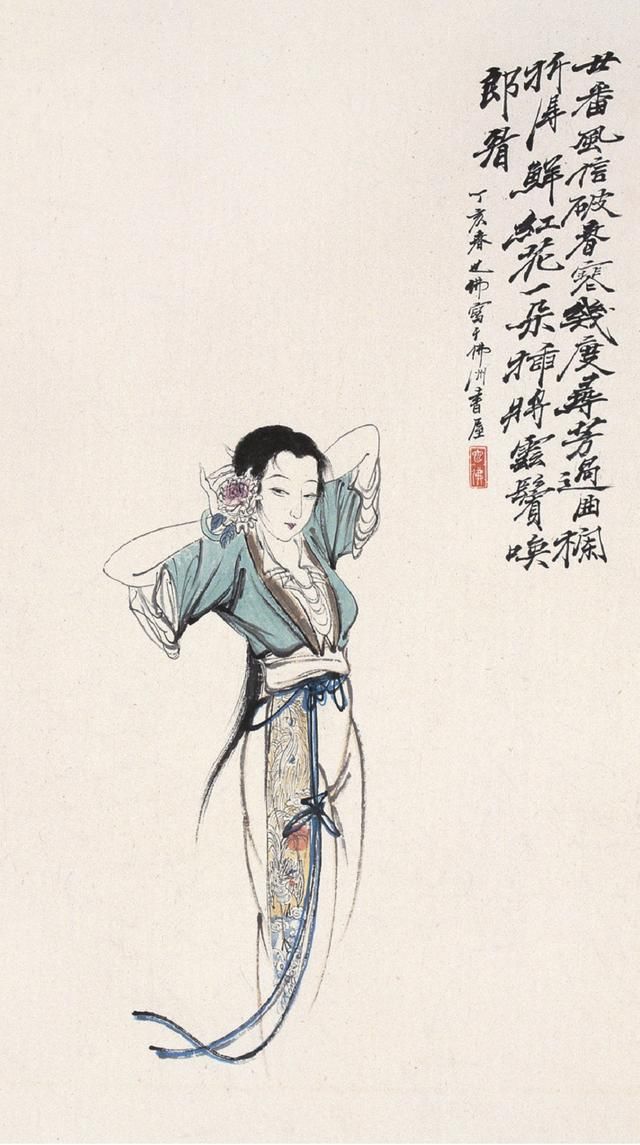 廿番風信破春寒幾度芳遍曲欄
折得鮮紅花一朵插將雲鬢喚
郎看
丁亥春也佛寫于佛洲書屋